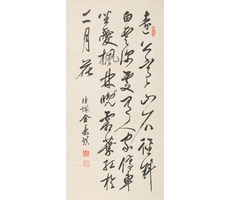 遠上寒山石徑斜
白雲深處有人家停車
坐愛楓林晚霜葉紅於
二月花